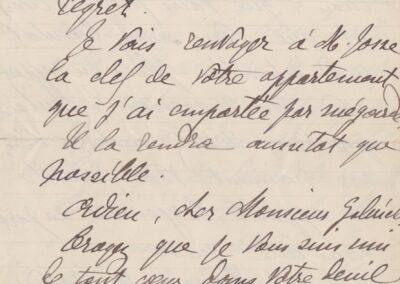 regret.
Je vais renvoyer à M. Josse
la clef de votre appartement
que j'ai emportée par mégarde
Il la rendra aussitôt que
possible.
Adieu, cher Monsieur Gabriel
Croyez que je vous suis uni
de tout cœur dans votre deuil